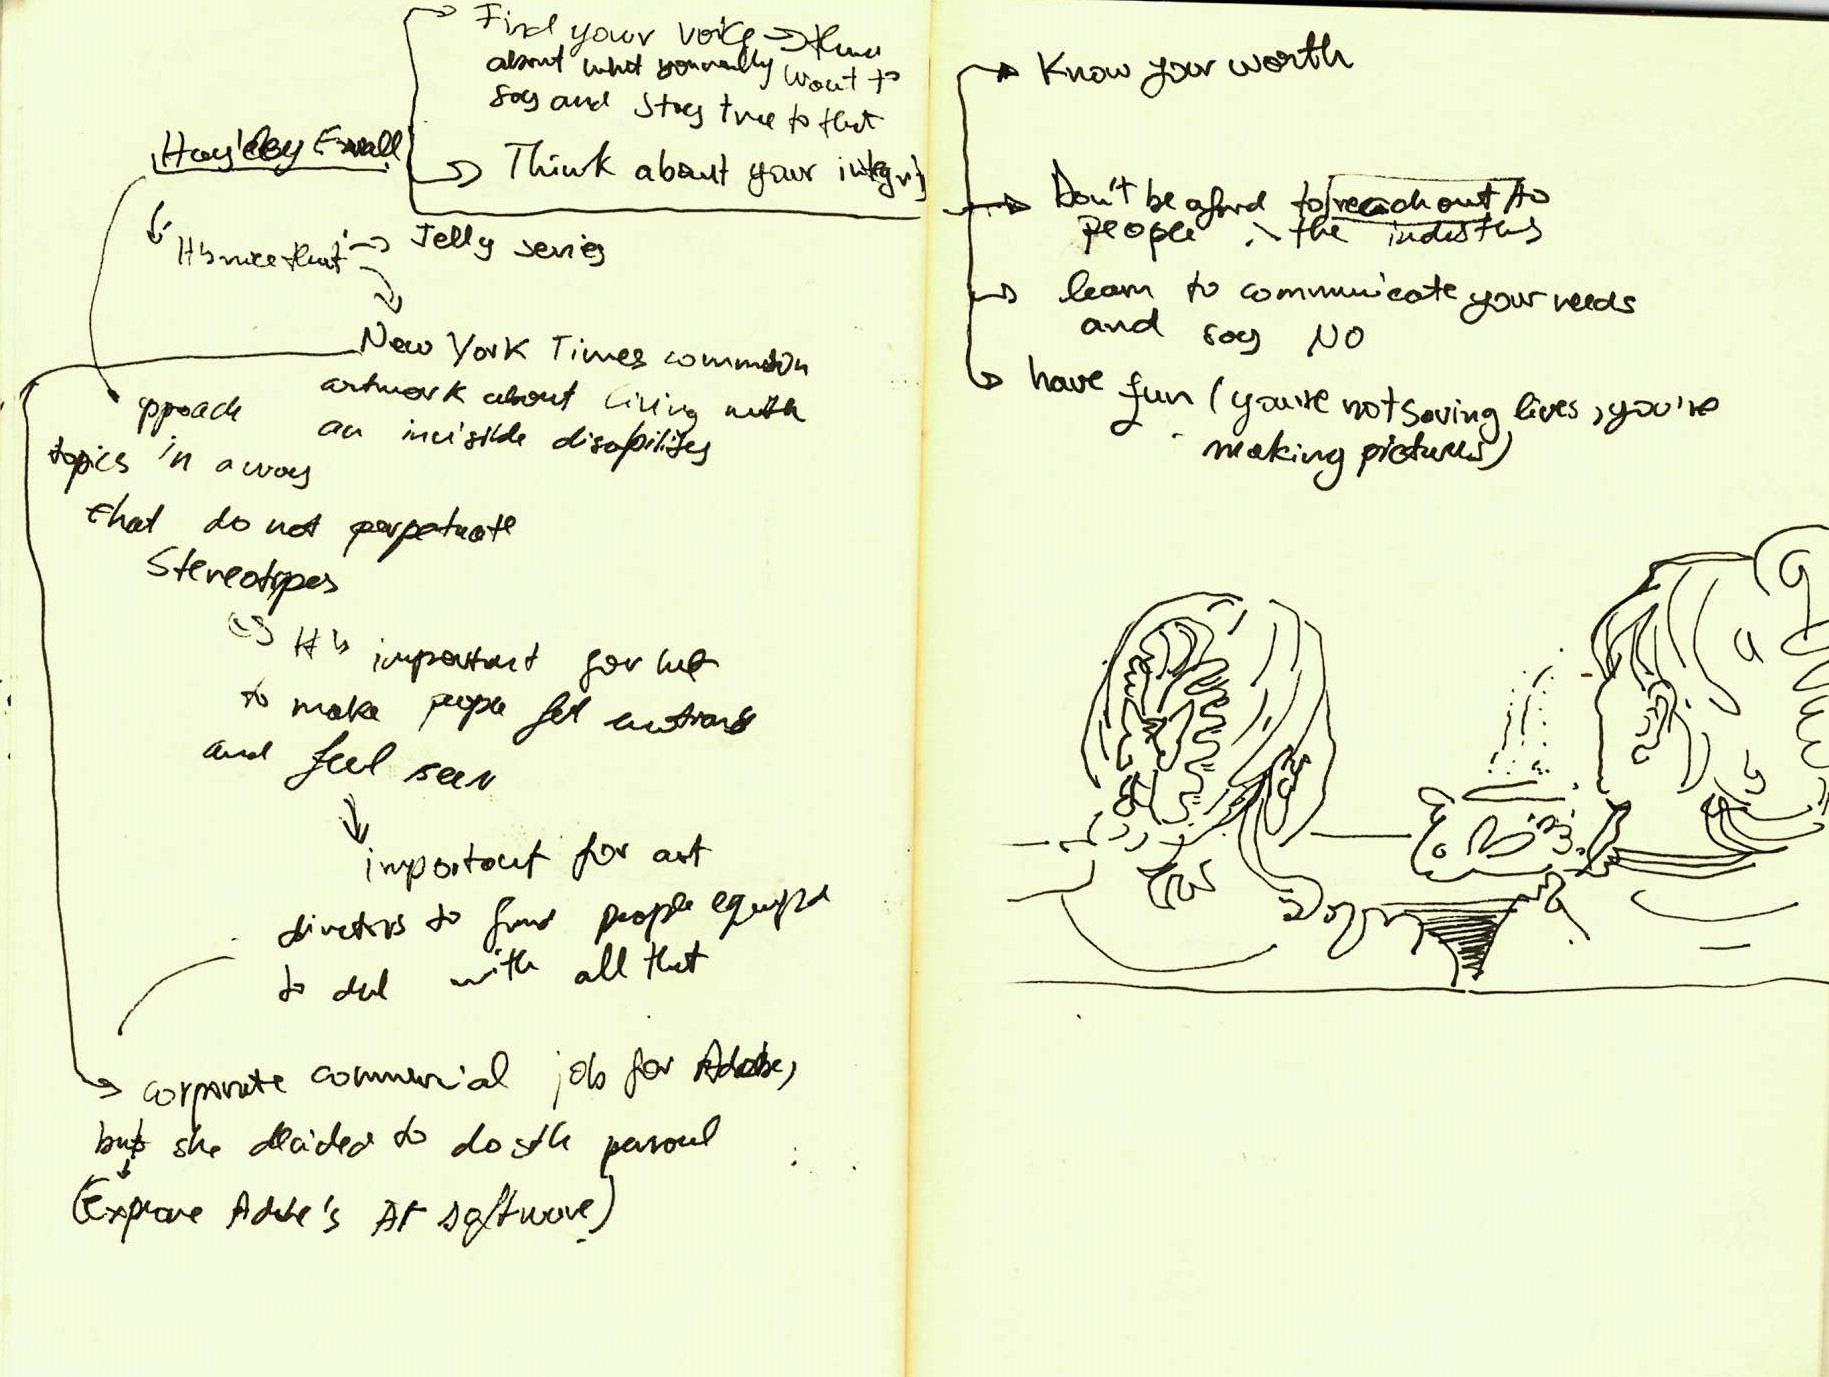 Find your voice → then
about what you really want to
say and stay true to that
Think about your integrity
Hayley Wall
It's nice that → Jelly series
New York Times commission
artwork about living with
an invisible disability
approach
topics in a way
that do not perpetuate
Stereotypes
It's important for her
to make people feel emotions
and feel seen
important for art
directors to find people equipped
to deal with all that
corporate commercial job for Adobe,
but she decided to do sth personal
(Explore Adobe's AR software)
Know your worth
Don't be afraid to reach out to
people in the industry
learn to communicate your needs
and say NO
have fun (you're not saving lives, you're
making pictures)